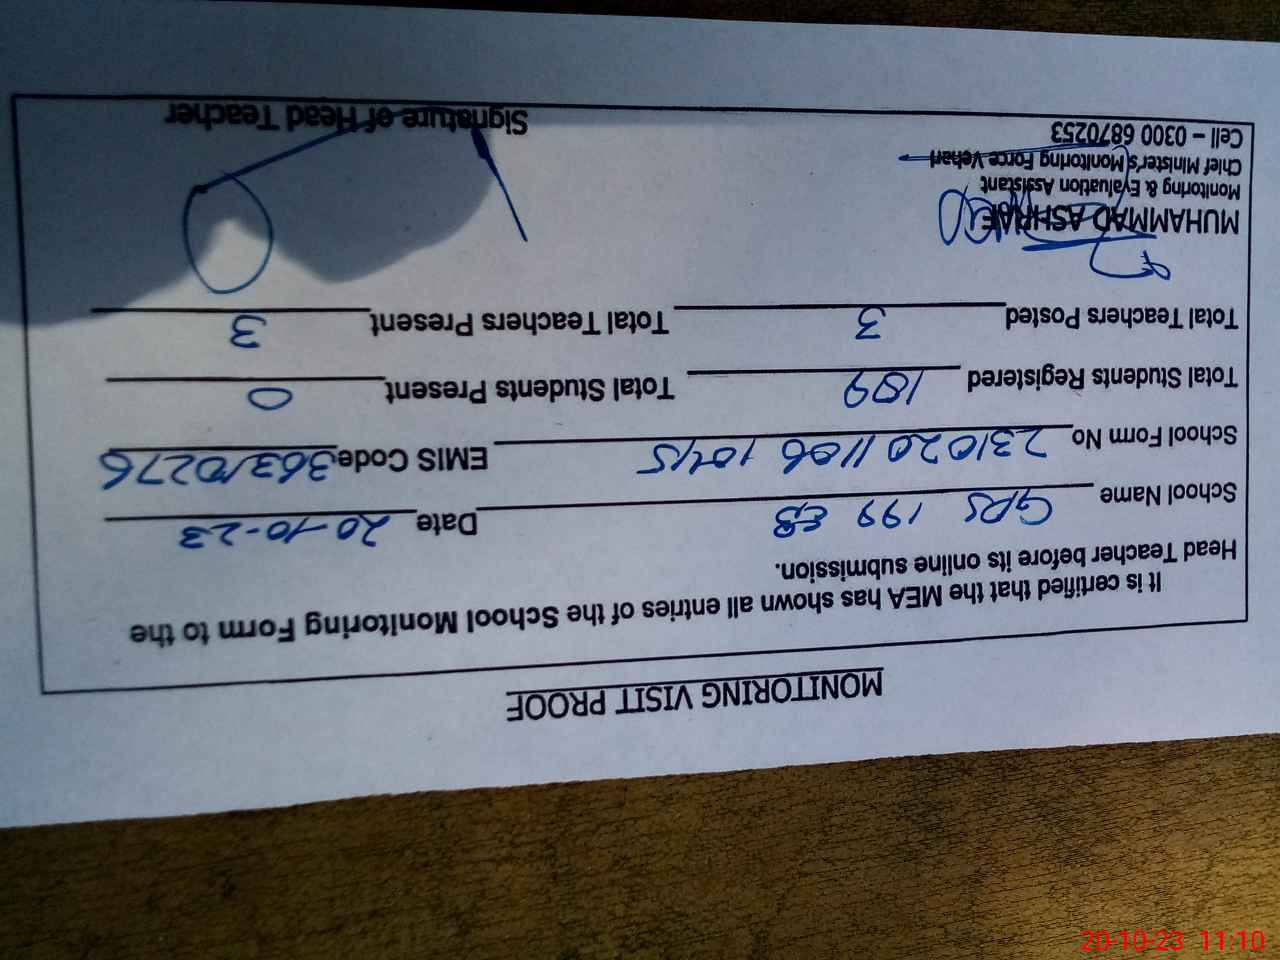 MONITORING VISIT PROOF
It is certified that the MEA has shown all entries of the School Monitoring Form to the
Head Teacher before its online submission.
School Name GPS 199 EB Date 20-10-23
School Form No 2310201106 1045 EMIS Code 36310276
Total Students Registered 189 Total Students Present 0
Total Teachers Posted 3 Total Teachers Present 3
MUHAMMAD ASHRAF
Monitoring & Evaluation Assistant
Chief Minister's Monitoring Force Vehari
Cell – 0300 6870253 Signature of Head Teacher
20-10-23 11:10